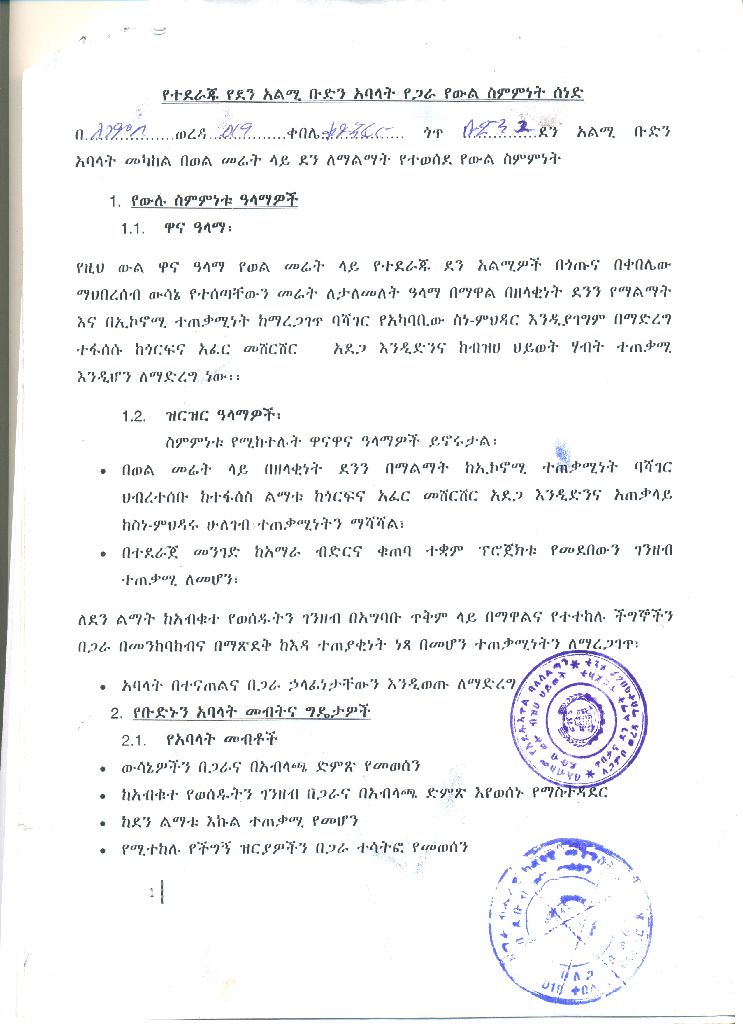 የተደራጁ የደን አልሚ ቡድን አባላት የጋራ የውል ስምምነት ሰነድ
በ ወረዳ 019 ቀበሌ ጎጥ 2 ደን አልሚ ቡድን
አባላት መካከል በወል መሬት ላይ ደን ለማልማት የተወሰደ የውል ስምምነት
1. የውሉ ስምምነቱ ዓላማዎች
1.1. ዋና ዓላማ፡
የዚህ ውል ዋና ዓላማ የወል መሬት ላይ የተደራጁ ደን አልሚዎች በጎጡና በቀበሌው
ማህበረሰብ ውሳኔ የተሰጣቸውን መሬት ለታለመለት ዓላማ በማዋል በዘላቂነት ደንን የማልማት
እና በኢኮኖሚ ተጠቃሚነት ከማረጋገጥ ባሻገር የአካባቢው ስነ-ምህዳር እንዲያገግም በማድረግ
ተፋሰሱ ከጎርፍና አፈር መሸርሸር አደጋ እንዲድንና ከብዝሀ ህይወት ሃብት ተጠቃሚ
እንዲሆን ለማድረግ ነው፡፡
1.2. ዝርዝር ዓላማዎች፡
ስምምነቱ የሚከተሉት ዋናዋና ዓላማዎች ይኖሩታል፡
• በወል መሬት ላይ በዘላቂነት ደንን በማልማት ከኢኮኖሚ ተጠቃሚነት ባሻገር
ህብረተሰቡ ከተፋሰስ ልማቱ ከጎርፍና አፈር መሸርሸር አደጋ እንዲድንና አጠቃላይ
ከስነ-ምህዳሩ ሁለገብ ተጠቃሚነትን ማሻሻል፣
• በተደራጀ መንገድ ከአማራ ብድርና ቁጠባ ተቋም ፕሮጀክቱ የመደበውን ገንዘብ
ተጠቃሚ ለመሆን፣
ለደን ልማት ከአብቁተ የወሰዱትን ገንዘብ በአግባቡ ጥቅም ላይ በማዋልና የተተከሉ ችግኞችን
በጋራ በመንከባከብና በማጽደቅ ከእዳ ተጠያቂነት ነጻ በመሆን ተጠቃሚነትን ለማረጋገጥ፣
• አባላት በተናጠልና በጋራ ኃላፊነታቸውን እንዲወጡ ለማድረግ
2. የቡድኑን አባላት መብትና ግዴታዎች
2.1. የአባላት መብቶች
• ውሳኔዎችን በጋራና በአብላጫ ድምጽ የመወሰን
• ከአብቁተ የወሰዱትን ገንዘብ በጋራና በአብላጫ ድምጽ እየወሰኑ የማስተዳደር
• ከደን ልማቱ እኩል ተጠቃሚ የመሆን
• የሚተከሉ የችግኝ ዝርያዎችን በጋራ ተሳትፎ የመወሰን
1